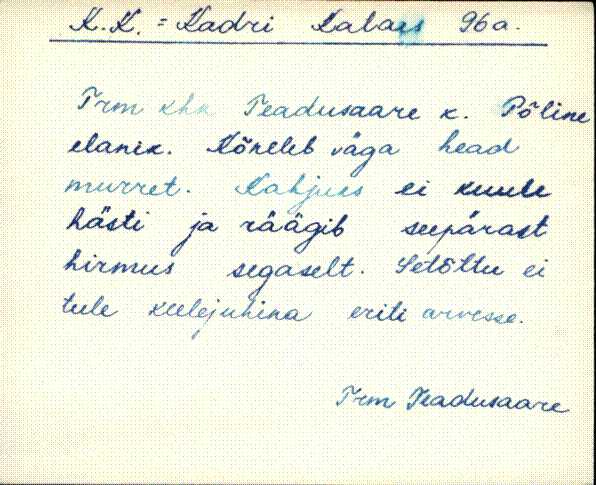 K.K. = Kadri Kalaus 96 a.
Trm khk Teadusaare k. Põline
elanik. Kõneleb väga head
murret. Kahjuks ei kuule
hästi ja räägib seepärast
hirmus segaselt. Setõttu ei
tule keelejuhina eriti arvesse.
Trm Teadusaare